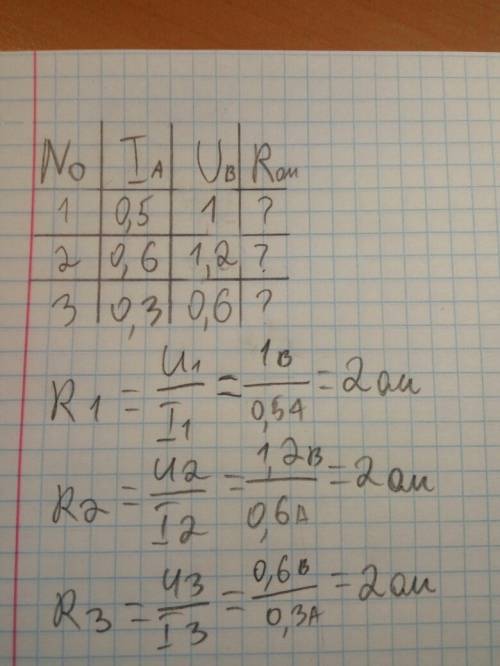 No I A U В R ом
1 0,5 1 ?
2 0,6 1,2 ?
3 0,3 0,6 ?
R1 = U1/I1 = 1В/0,5А = 2 ом
R2 = U2/I2 = 1,2В/0,6А = 2 ом
R3 = U3/I3 = 0,6В/0,3А = 2 ом